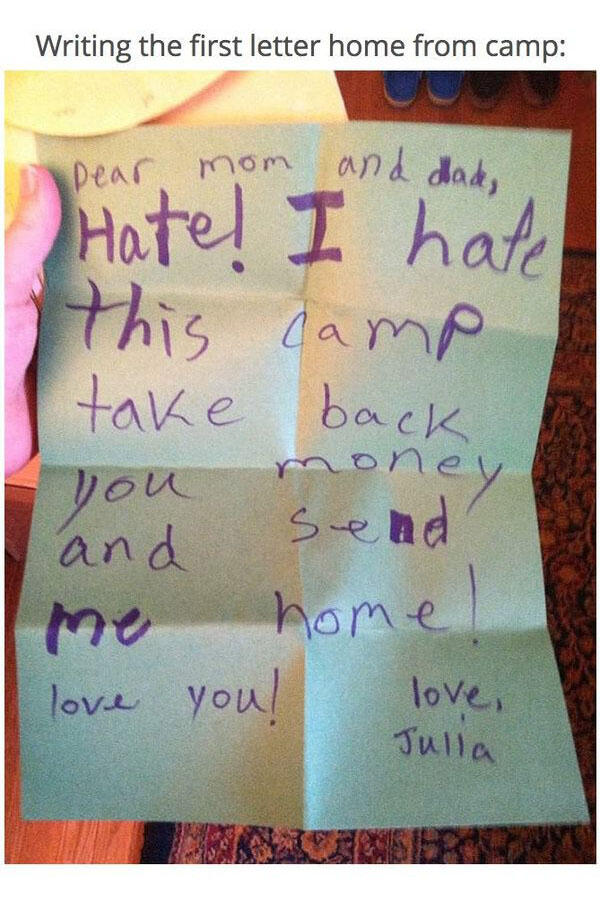 Writing the first letter home from camp:
Dear mom and dad,
Hate! I hate
this camp
take back
you money
and send
me home!
love you! love,
Julia